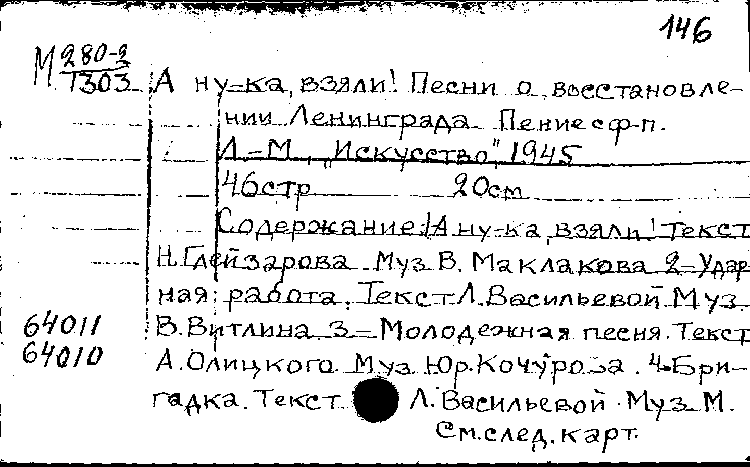 146
М 280-2
1303
А ну-ка, взяли! Песни о восстановле-
нии Ленинграда. Пение с ф-п.
Л.-М., "Искусство", 1945
46 стр 20 см
Содержание: 1А ну-ка, взяли! Текст
Н. Глейзарова Муз В. Маклакова 2-Удар
ная работа. Текст Л. Васильевой Муз
64011 В. Витлина 3-Молодежная песня. Текст
64010 А. Олицкого Муз Юр. Кочурова. 4-Бри-
гадка. Текст Л. Васильевой. Муз М.
См. след. карт.